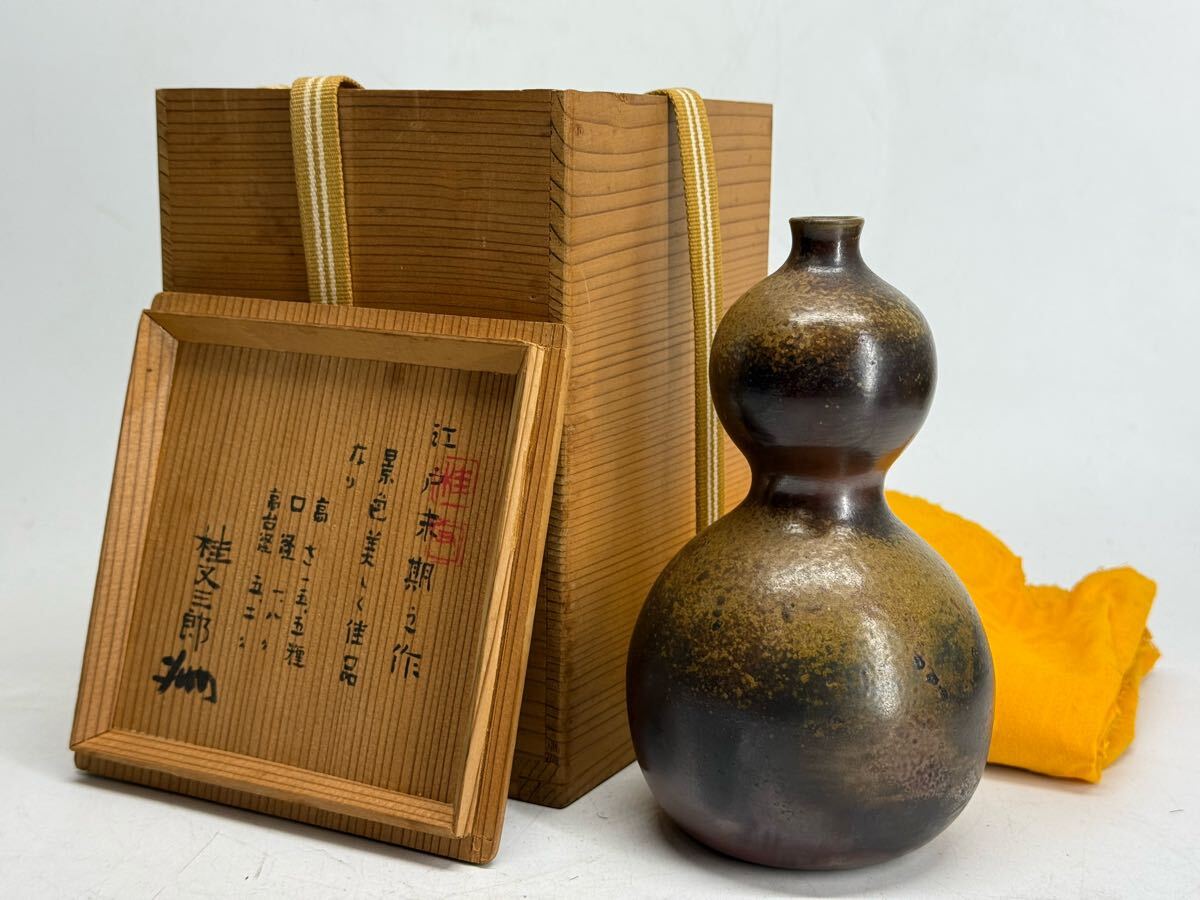 江戸末期之作
景色美しく佳品
なり
高さ一五.五糎
口径 一.八〃
高台径 五.二〃
桂又三郎